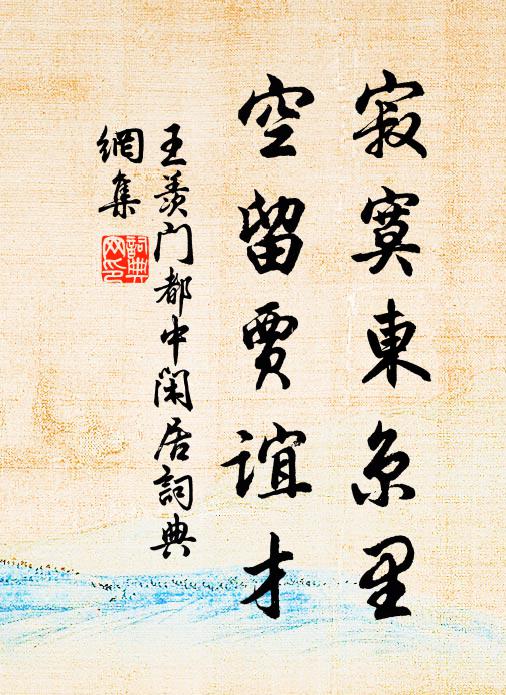 寂寞東京里
空留賈誼才
王羨门都中閑居詞典
網集
詞典
网印